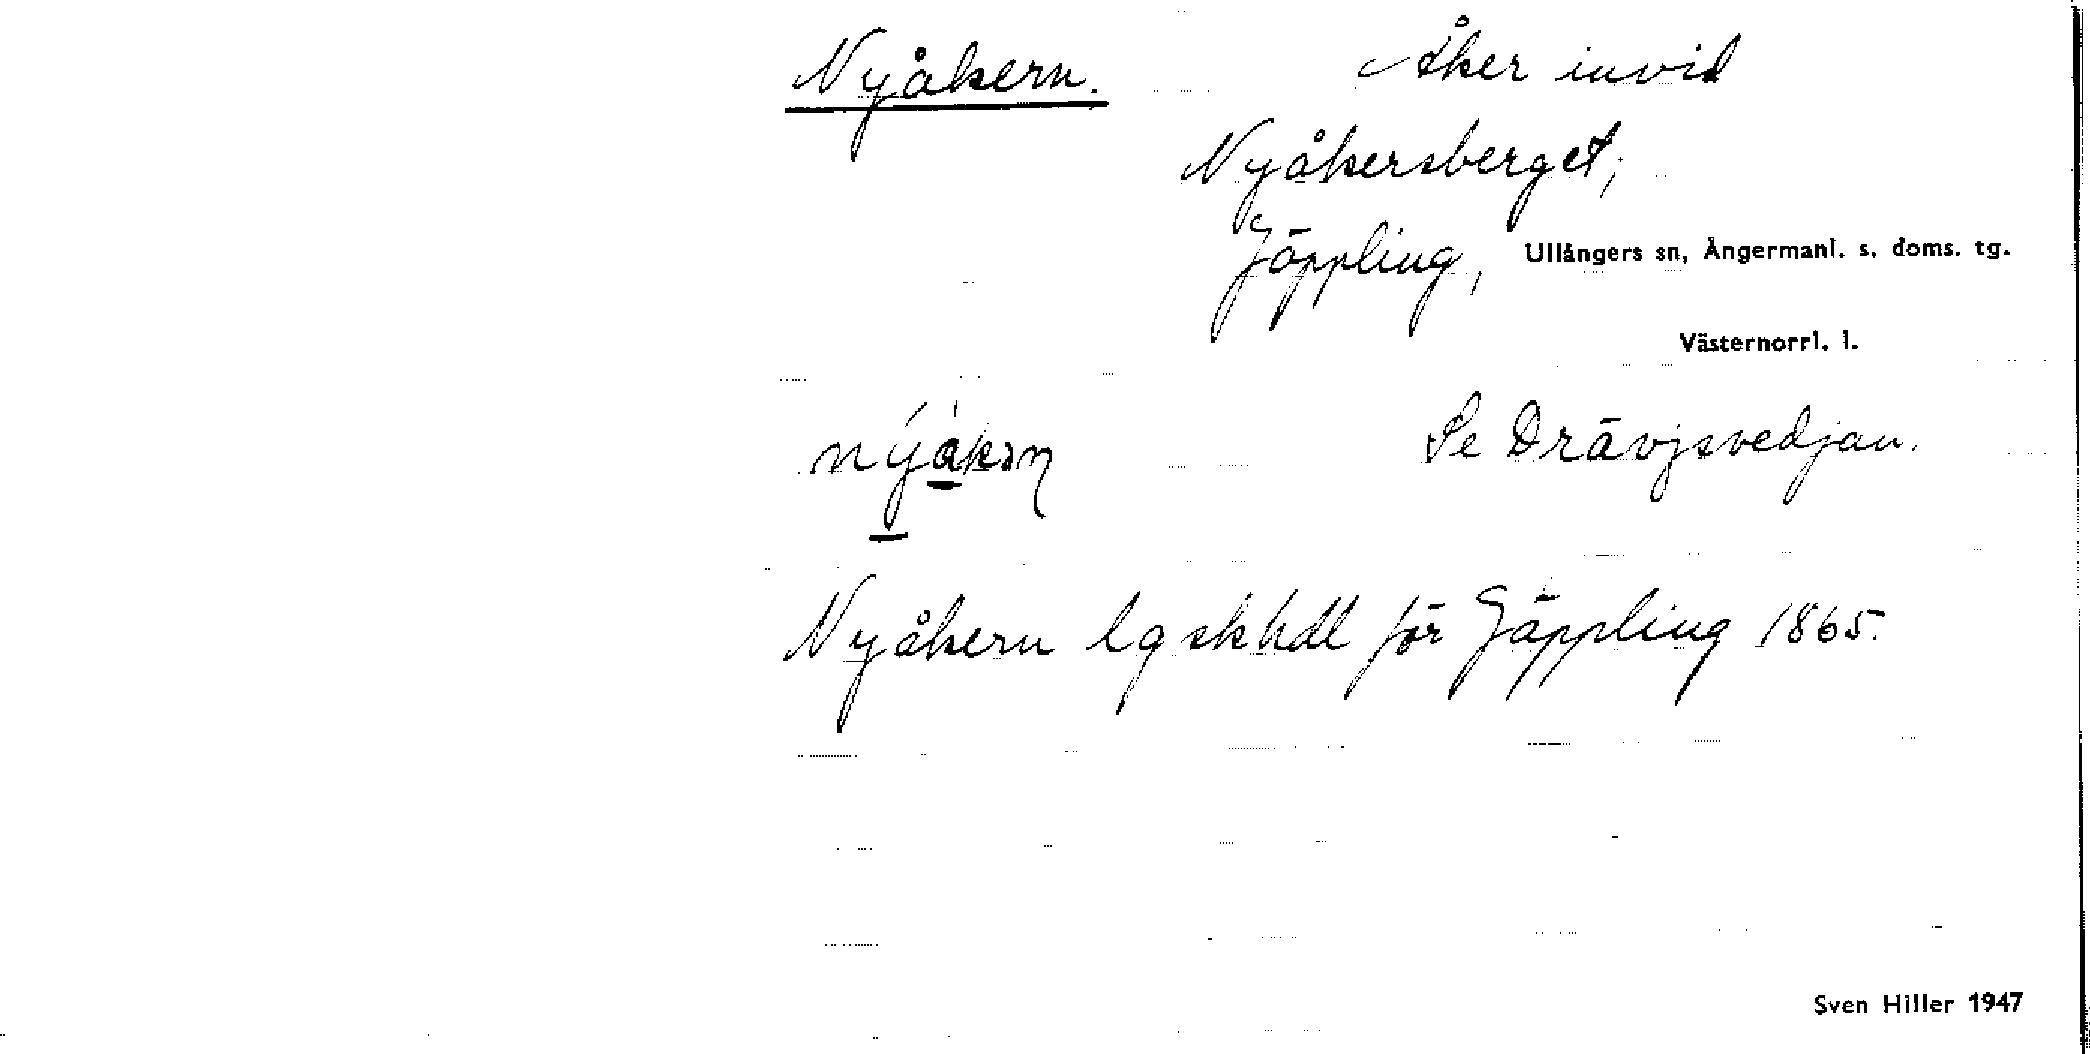 Nyåkern. Åker invid
Nyåkersberget,
Jäppling, Ullångers sn, Ångermanl. s. doms. tg.
Västernorrl. l.
Se Drävjsvedjan.
Nyåkern lgskhdl för Jäppling 1865.
Sven Hiller 1947